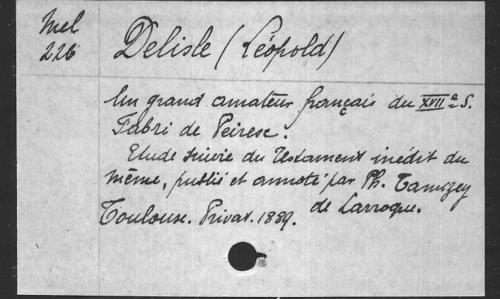 Mel
226
Delisle (Léopold)
Un grand amateur français du XVIIe S.
Fabri de Peiresc.
Etude suivie du Testament inédit du
même, publié et annoté par Ph. Tamizey
de Larroque.
Toulouse. Privat. 1889.